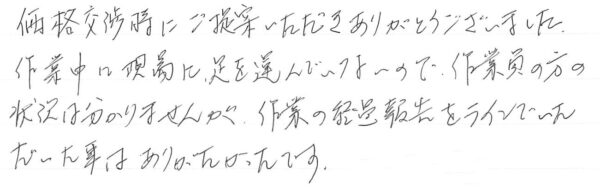 価格交渉時にご提案いただきありがとうございました。
作業中に現場に足を運んでいないので、作業員の方の
状況は分かりませんが、作業の経過報告をラインでいた
だいた事はありがたかったです。